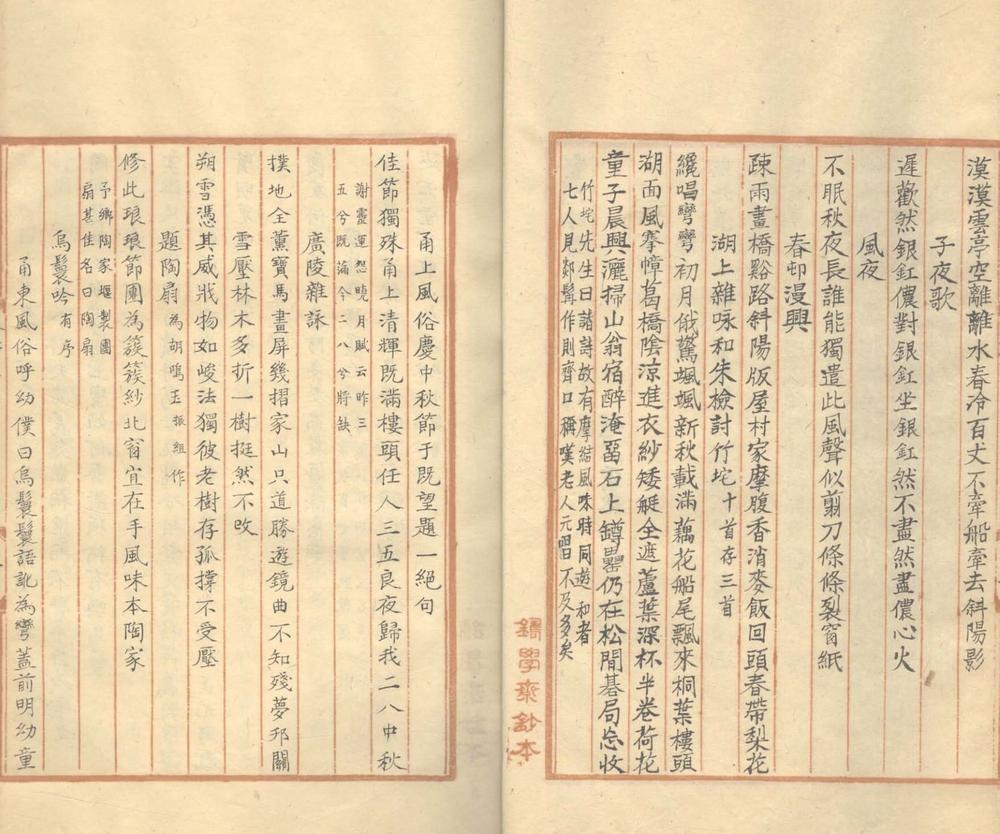 漠漠雲亭空離離水春冷百丈不牽船牽去斜陽影
子夜歌
遲歡然銀釭儂對銀釭坐銀釭然不盡然盡儂心火
風夜
不眠秋夜長誰能獨遣此風聲似翦刀條條裂窗紙
春邨漫興
疎雨畫橋谿路斜陽版屋村家摩腹香消麥飯回頭春帶梨花
湖上雜咏和朱檢討竹垞十首存三首
纔唱彎彎初月俄驚颯颯新秋載滿藕花船尾飄來桐葉樓頭
湖面風搴幛葛橋陰涼進衣紗矮艇全遮蘆葉深杯半卷荷花
童子晨興灑掃山翁宿醉淹留石上罇罍仍在松閒棊局忘收
竹垞先生曰諸詩故有摩結風味時同遊和者
七人見郯髯作則齊口稱嘆老人元唱不及多矣
鐫學齋鈔本
甬上風俗慶中秋節于既望題一絕句
佳節獨殊甬上清輝既滿樓頭任人三五良夜歸我二八中秋
謝靈運怨曉月賦云昨三
五兮既滿今二八兮將缺
廣陵雜詠
撲地全薰寶馬畫屏幾摺家山只道勝遊鏡曲不知殘夢邗關
雪壓林木多折一樹挺然不改
朔雪憑其威戕物如峻法獨彼老樹存孤撑不受壓
題陶扇為胡鳴玉振組作
修此琅琅節團為簇簇紗北窗宜在手風味本陶家
予鄉陶家堰製團
扇甚佳名曰陶扇
烏鬟吟有序
甬東風俗呼幼僕曰烏鬟鬟語訛為彎蓋前明幼童